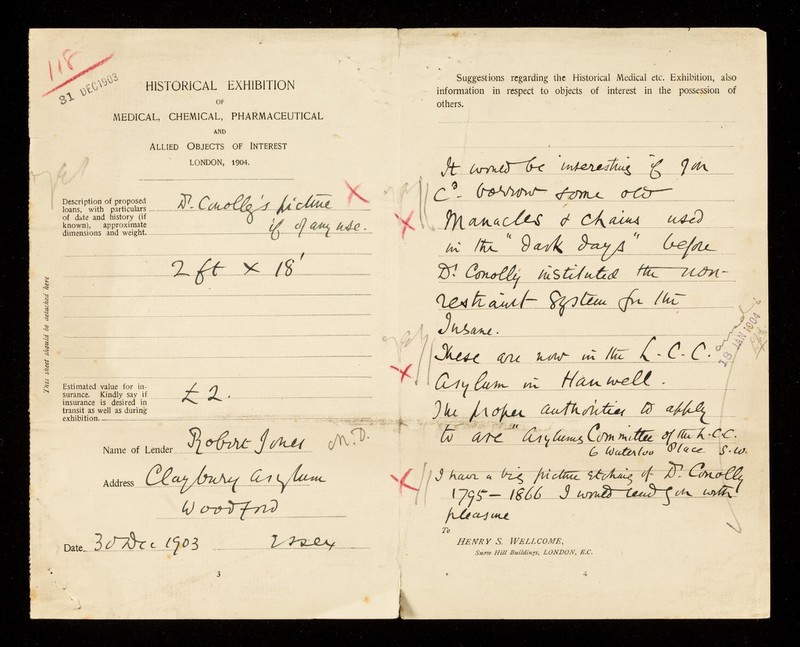 118
31 DEC 1903
HISTORICAL EXHIBITION
OF
MEDICAL, CHEMICAL, PHARMACEUTICAL
AND
ALLIED OBJECTS OF INTEREST
LONDON, 1904.
Description of proposed
loans, with particulars
of date and history (if
known), approximate
dimensions and weight.
Dr. Conolly's picture
if of any use.
2 ft × 18'
This sheet should be detached here
Estimated value for in-
surance. Kindly say if
insurance is desired in
transit as well as during
exhibition.
£2.
Name of Lender Robert Jones M.D.
Address Claybury Asylum
Woodford
Date 30 Dec 1903 Essex
3
Suggestions regarding the Historical Medical etc. Exhibition, also
information in respect to objects of interest in the possession of
others.
It would be interesting if you
cd. borrow some old
Manacles & chains used
in the "dark days" before
Dr. Conolly instituted the non-
restraint System for the
Insane.
These are now in the L.C.C.
Asylum in Hanwell.
The proper authorities to apply
to are "Asylums Committee of the L.C.C.
6 Waterloo Place S.W.
I have a big picture etching of Dr. Conolly
1795–1866 I would lend you with
pleasure
18 JAN 1904
To
HENRY S. WELLCOME,
Snow Hill Buildings, LONDON, E.C.
4